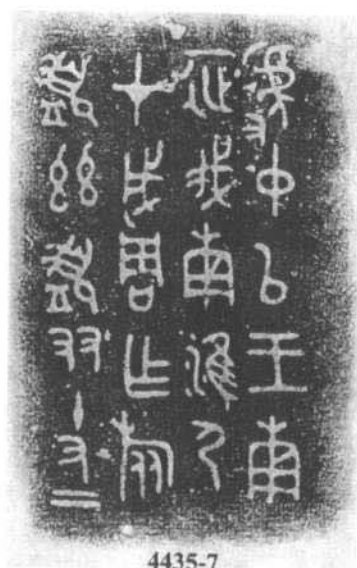 虢中㠯王南
征伐南淮尸
才成周乍旅
盨𢆶盨友十又二
4435-7